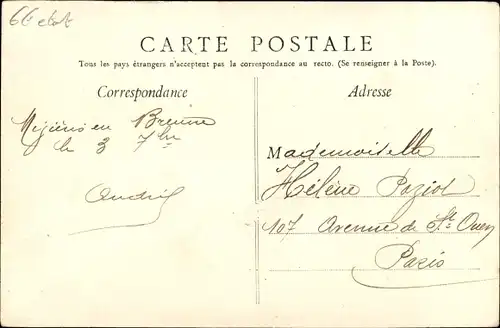 CARTE POSTALE
Tous les pays étrangers n'acceptent pas la correspondance au recto. (Se renseigner à la Poste).
Correspondance
Adresse
Mézières en Brenne
le 3 7bre
Mademoiselle
Hélène Poziot
107 Avenue de St Ouen
Paris